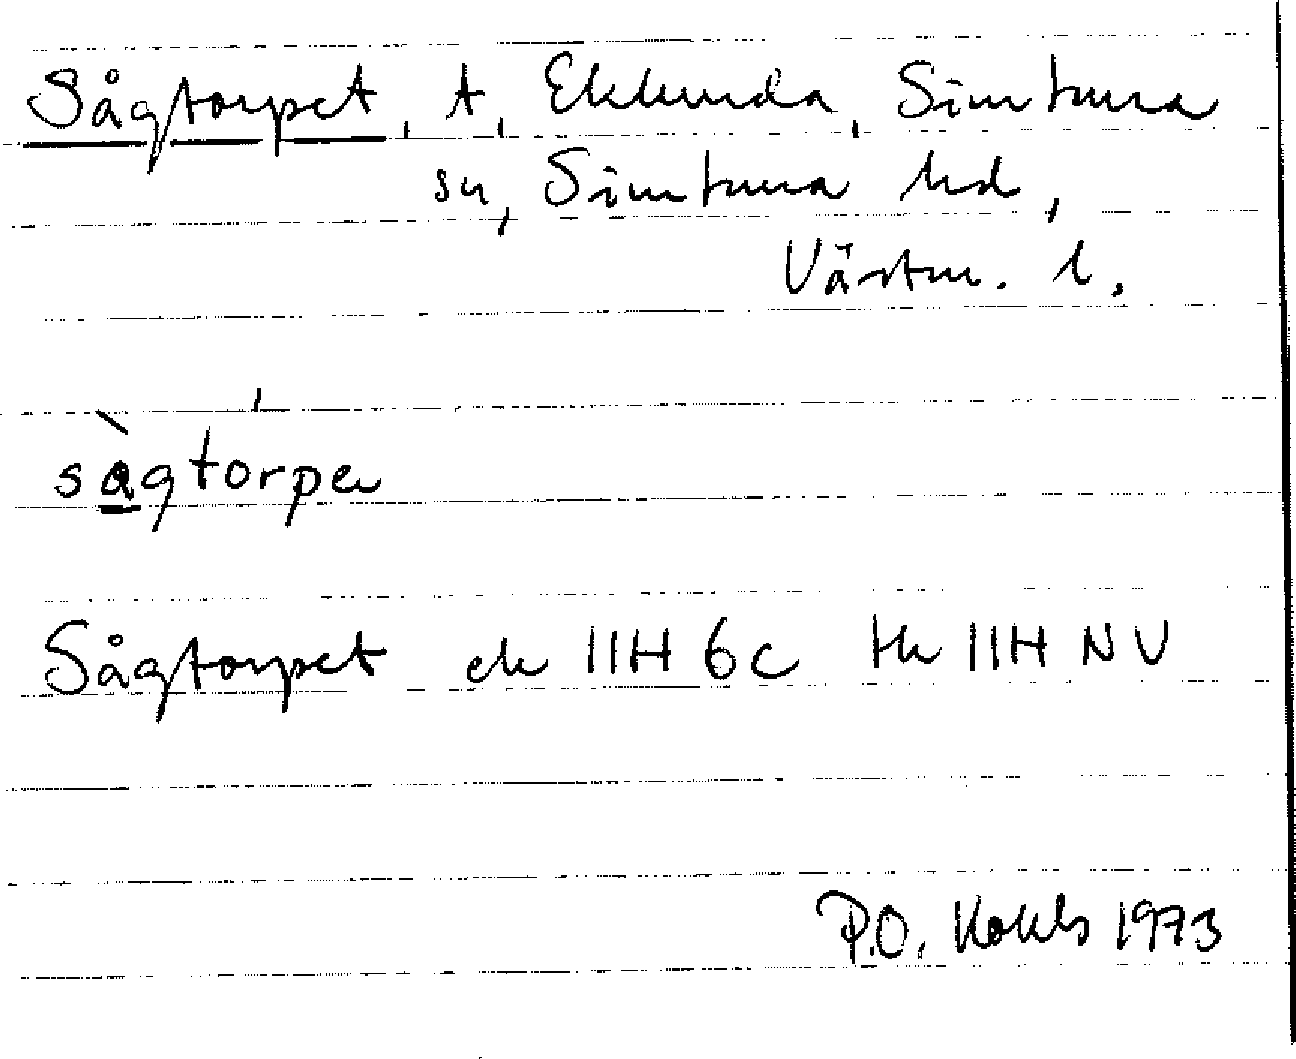 Sågtorpet, t, Eklunda, Simtuna
sn, Simtuna hd,
Västm. l.
sàgtórpeı
Sågtorpet ek 11H 6c tk 11H NV
P.O. Kohls 1973